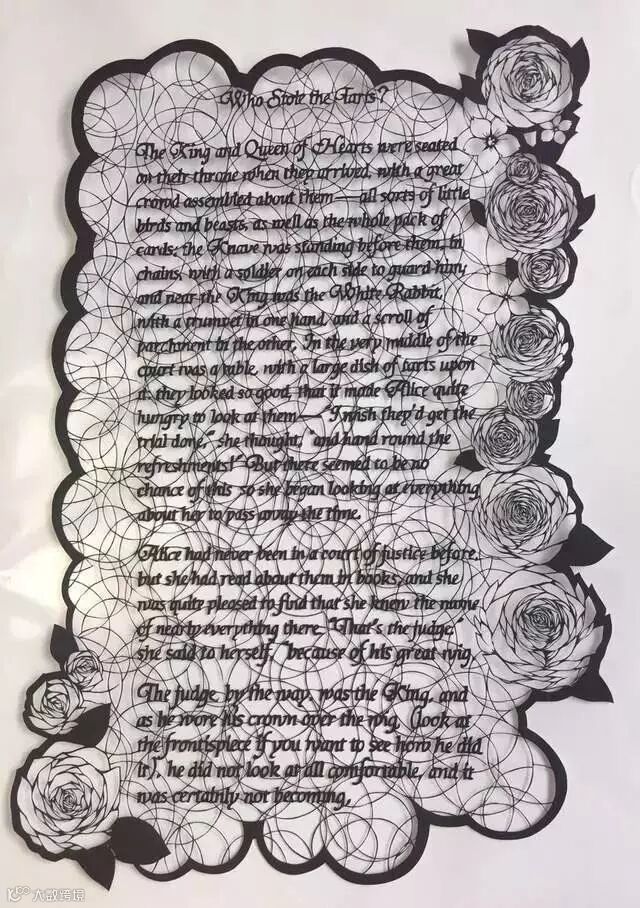 Who Stole the Tarts?
The King and Queen of Hearts were seated
on their throne when they arrived, with a great
crowd assembled about them—all sorts of little
birds and beasts, as well as the whole pack of
cards: the Knave was standing before them, in
chains, with a soldier on each side to guard him;
and near the King was the White Rabbit,
with a trumpet in one hand, and a scroll of
parchment in the other. In the very middle of the
court was a table, with a large dish of tarts upon
it: they looked so good, that it made Alice quite
hungry to look at them—"I wish they'd get the
trial done," she thought, "and hand round the
refreshments!" But there seemed to be no
chance of this so she began looking at everything
about her to pass away the time.
Alice had never been in a court of justice before,
but she had read about them in books, and she
was quite pleased to find that she knew the name
of nearly everything there. "That's the judge,"
she said to herself, "because of his great wig.
The judge, by the way, was the King, and
as he wore his crown over the wig, (look at
the frontispiece if you want to see how he did
it), he did not look at all comfortable, and it
was certainly not becoming.
大数跨境